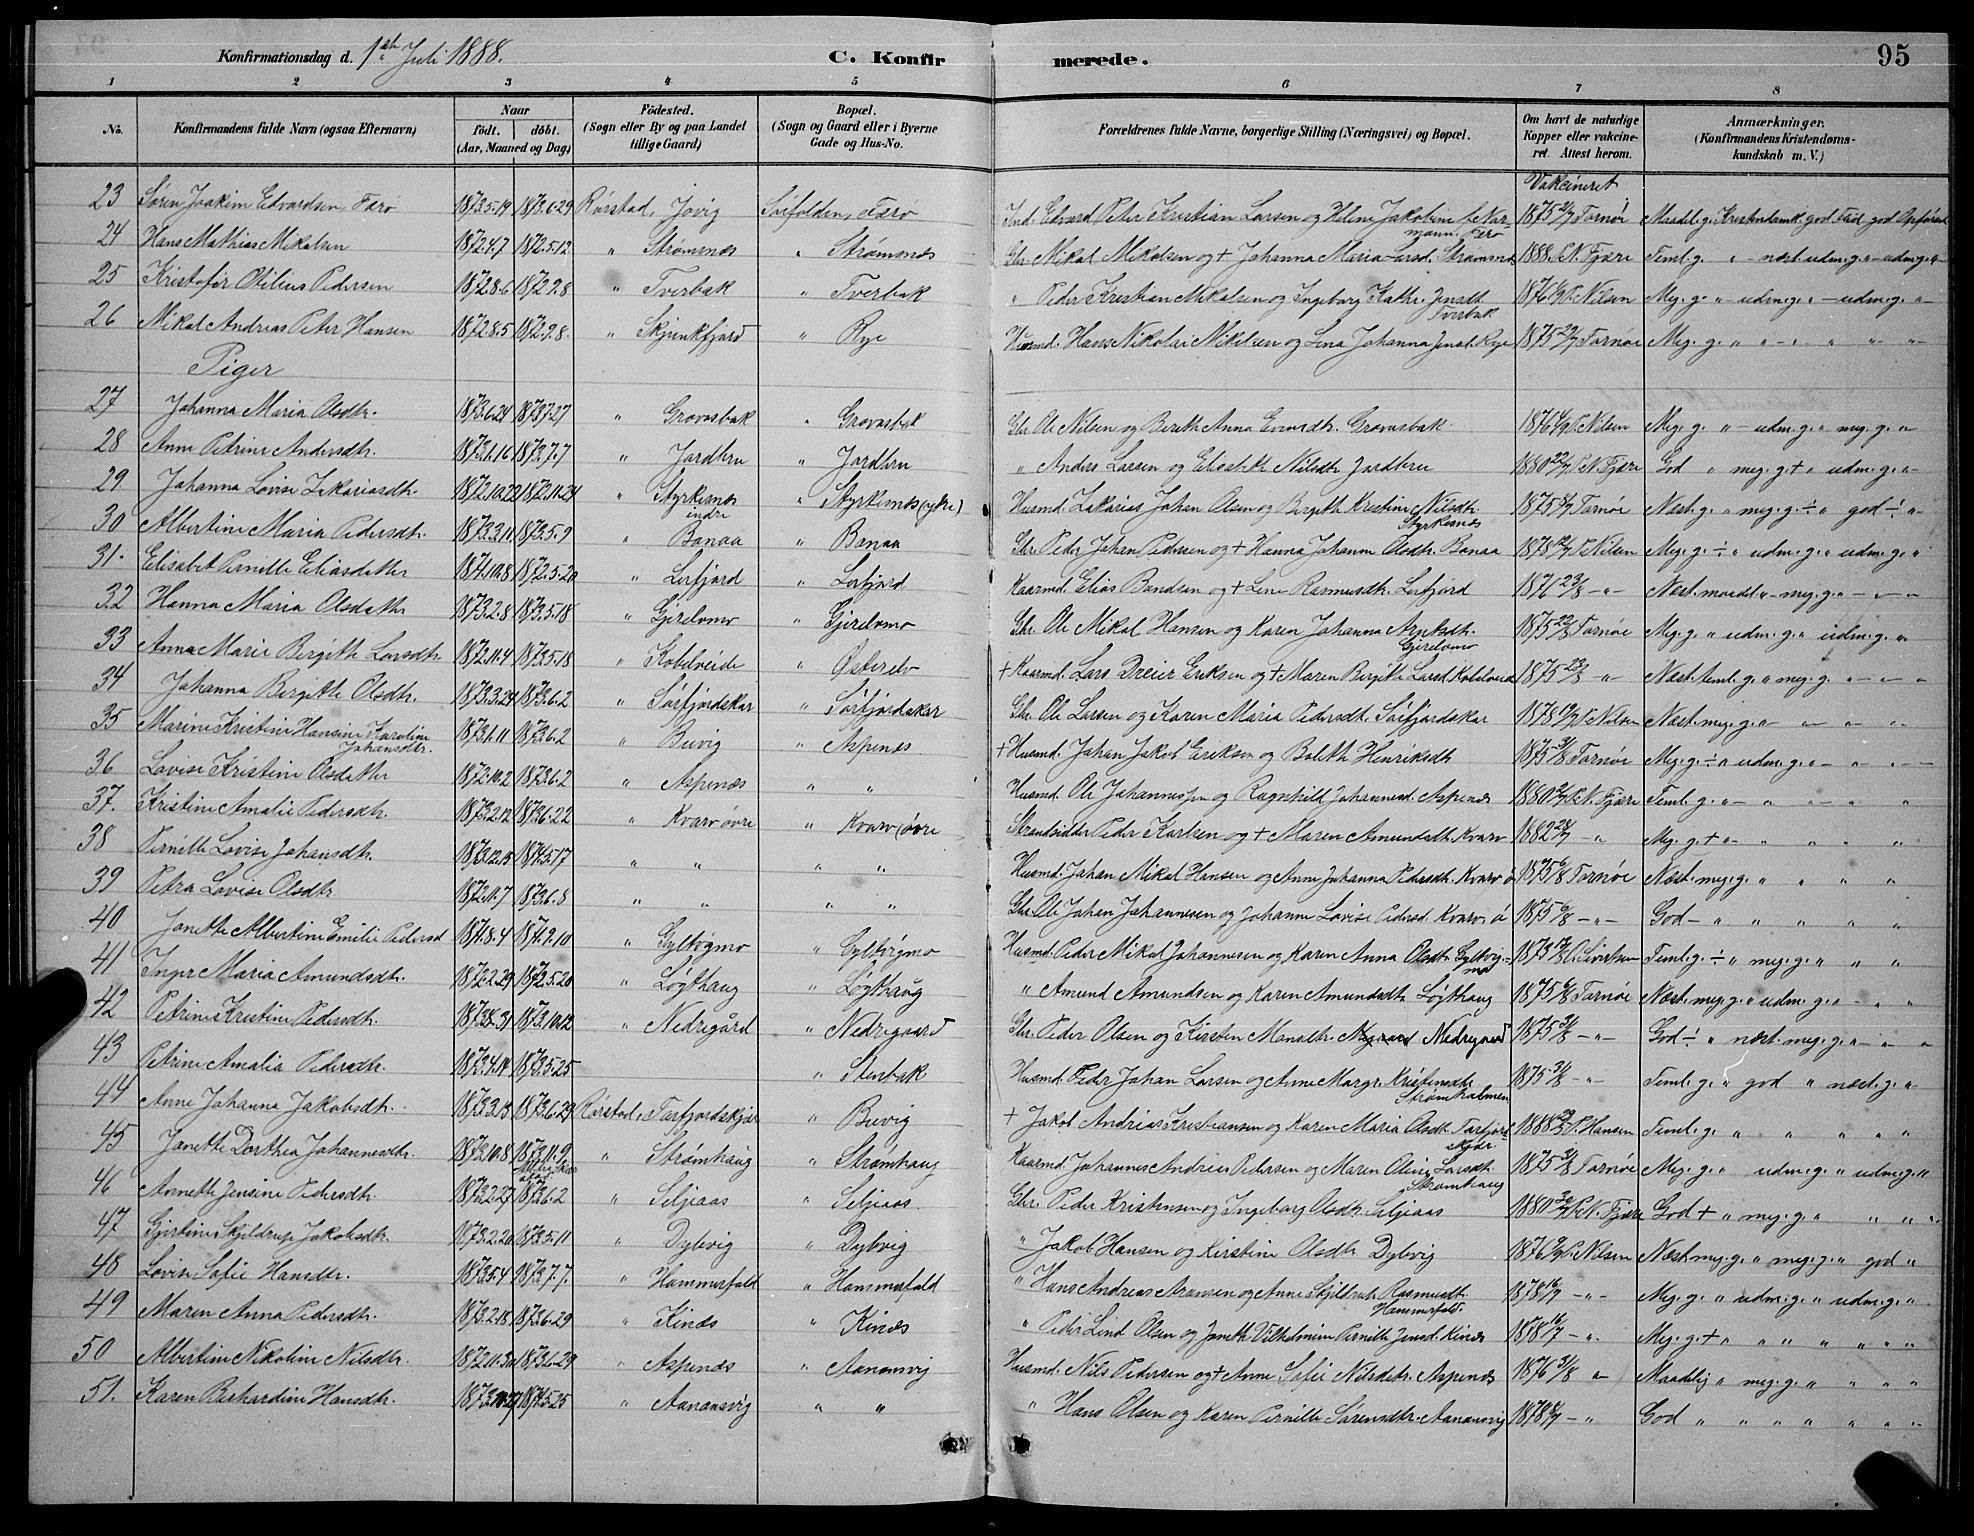 Konfirmationsdag d. 1ste Juli 1888. C. Konfirmerede. 95
1 2 3 4 5 6 7 8
No. Konfirmandens fulde Navn (ogsaa Efternavn) Naar født. døbt. (Aar, Maaned og Dag) Fødested. (Sogn eller By og paa Landet tillige Gaard) Bopæl. (Sogn og Gaard eller i Byerne Gade og Hus-No. Forældrenes fulde Navne, borgerlige Stilling (Næringsvei) og Bopæl. Om havt de naturlige Kopper eller vakcineret. Attest herom. Anmærkninger. (Konfirmandens Kristendomskundskab m. V.)
Vakcineret
23 Søren Joakim Edvardsen, Færø 1873.5.19 1873.6.29 Rørstad, Jovig Sørfolden, Færø Ind. Edvard Peter Kristian Larsen og Helene Jakobine 1875 Tornøe Maadl. g. Kristendomsk. god Flid god Opførsel
24 Hans Mathias Mikalsen 1872.4.7 1872.5.12 " Strømsnæs " Strømsnæs Gbr. Mikal Mikalsen og + Johanna Maria Larsd. Strømsnæs 1888 P.N. Fjære Teml. g. " - næst. udm. g. " - udm. g. "
25 Kristofer Otilius Pedersen 1872.8.6 1872.9.8 " Tverbak " Tverbak " Peder Kristian Mikalsen og Ingeborg Kathr. Jensdt. Tverbak 1876 P. Nilsen Meg. g. " - udm. g. " - udm. g. "
26 Mikal Andreas Peter Hansen 1872.8.5 1872.9.8. " Skjunkfjord " Rye Husmd. Hans Nikolai Mikelsen og Lina Johanna Jensd. Rye 1875 Tornøe Meg. g. " " - " " " "
Piger
27 Johanna Maria Olsdtr. 1873.6.24 1873.7.27 " Grovasbak " Grovasbak Gbr. Ole Nilsen og Berith Anna Evensdtr. Grovasbak 1876 P. Nilsen Meg. g. " - udm. g. " meg. g. "
28 Anne Petrine Andersdtr. 1873.1.16 1873.7.7 " Jordbru " Jordbru " Anders Larsen og Elisabeth Nilsdtr Jordbru 1880 P.N. Fjære God " meg. g + " udm. g. "
29 Johanna Lovise Zakariasdtr. 1872.10.22 1872.11.24 " Styrkesnæs indre " Styrkesnæs (ydre) Husmd. Zakarias Johan Olsen og Birgith Kristine Nilsdtr. Styrkesnæs 1875 Tornøe Næst. g. " meg. g. ÷ " god ÷ "
30 Albertine Maria Pedersdtr. 1873.3.11 1873.5.9 " Bonaa " Bonaa Gbr. Peder Johan Pedersen og + Hanna Johanna Olsdtr. Bonaa 1878 P. Nilsen Meg. g. ÷ " udm. g. " udm. g. "
31. Elisabet Pernille Eliasdatter 1871.10.8 1872.5.20 " Lerfjord " Lerfjord Kaarmd. Elias Bendsen og + Lene Rasmusdtr. Lerfjord 1876 23/8 - " - Næst. maadel. " - meg. g. " - " - "
32 Hanna Maria Olsdatter 1873.2.8 1873.5.18 " Gjerelvmo " Gjerelvmo Gbr. Ole Mikal Hansen og Karen Johanna Arntsdtr. Gjerelvmo 1875 Tornøe Meg. g. " udm. g. " udm. g. "
33 Anna Marie Birgitte Larsdtr 1872.11.4 1873.5.18 " Kobelveide " Østerelv + Kaarmd. Lars Dreier Eriksen og + Maren Birgitte Larsd. Kobelveid 1875 23/8 - " - Næst. teml. g. " meg. g. " - " - "
34 Johanna Birgitte Olsdtr. 1873.3.24 1873.6.2 " Sørfjordskar " Sørfjordskar Gbr. Ole Larsen og Karen Maria Pedersdtr. Sørfjordskar 1878 P. Nilsen Næst. meg. g. " - " " "
35 Marine Kristine Hansine Karoline Johansdtr. 1873.1.11 1873.6.2 " Buvig " Aspenæs + Husmd. Johan Jakob Eriksen og Bolith Henriksdtr 1875 31/8 Tornøe Meg. g. ÷ " udm. g. " - " - " -
36 Lovise Kristine Olsdatter 1872.10.2 1873.6.2 " Aspenæs " " Husmd. Ole Johannessen og Ragnhild Johannesd. Aspenæs 1880 P.N. Fjære Teml. g. " - " " - " "
37. Kristine Amalie Pedersdtr. 1873.2.12 1873.6.22 " Kvarv øvre " Kvarv, øvre Strandsidder Peder Karlsen og + Maren Amundsdtr. Kvarv 1882 - " Meg. g. + " - " " " "
38 Pernille Lovise Johansdtr. 1873.12.15 1874.5.17 " " " " Husmd. Johan Mikal Hansen og Anne Johanna Pedersdtr. Kvarv ø 1875 Tornøe Næst. meg. g. " " " "
39 Petra Lovise Olsdtr. 1872.11.7 1873.6.8 " " " " Gbr. Ole Johan Johannesen og Johanne Lovise Pedersd. Kvarv ø 1875 - " - God - " " " " "
40 Janette Albertine Emilie Pedersd 1871.8.4 1871.9.10 " Gyltvigmo " Gyltvigmo Husmd. Peder Mikal Johannesen og Karen Anna Olsdtr. Gyltvigmo 1873 O. Sivertsen Teml. g. ÷ " meg. g. " " "
41 Inger Maria Amundsdtr. 1872.2.29 1872.5.20 " Løgthaug " Løgthaug " Amund Amundsen og Karen Amundsdtr. Løgthaug 1875 Tornøe Næst. meg. g. " udm. g. " - " "
42 Petrine Kristine Pedersdtr. 1873.8.31 1873.10.12 " Nedregård " Nedregaard Gbr. Peder Olsen og Kirsten Monsdtr. Nedregaard 1875 31/8 - " - God ÷ " næst. meg. g. " - " "
43 Petrine Amalia Pedersdtr. 1873.4.14 1873.5.25 " Stenbak Husmd. Peder Johan Larsen og Anne Margr. Kristensdtr. Strømholmen 1875 31/8 - " Teml. g. " god " næst. g. "
44 Anne Johanna Jakobsdtr. 1873.3.13 1873.6.29 Rørstad, Torfjordskjær " Buvig + Jakob Andreas Kristiansen og Karen Maria Olsdtr. Torfjordskjær 1888 P. Hansen Teml. g. " " " " "
45 Janette Dorthea Johannesdtr. 1873.10.8 1873.11.9 " Strømhaug " Strømhaug Kaarmd. Johannes Andreas Pedersen og Maren Oline Larsdt. Strømhaug 1875 31/8 Tornøe Meg. g. " udm. g. " udm. g. "
46 Annette Jensine Pedersdtr. 1873.2.27 1873.6.2 " Seljeaas " Seljeaas Gbr. Peder Kristensen og Ingeborg Olsdtr. Seljeaas 1880 P.N. Fjære God + " meg. g. " " " "
47 Gjertine Skjeldrup Jakobsdtr. 1873.2.20 1873.5.11 " Dybvig " Dybvig " Jakob Hansen og Kirstine Olsdtr Dybvig 1876 P. Nilsen Næst meg. g. " meg. g. " god "
48 Lovise Sofie Hansdtr. 1873.5.4 1873.7.7. " Hammerfald " Hammerfald " Hans Andreas Aronsen og Anne Skjeldrup Rasmusdt. Hammerfald. 1878 16/7 - " - Meg. g. " udm. g. " udm. g. "
49 Maren Anna Pedersdtr. 1873.2.18 1873.6.29 " Kinæs " Kinæs " Peder Lind Olsen og Janeth Vilhelmine Pernille Jensd. Kinæs 1878 16/7 - " Meg. g. + " " " " " "
50 Albertine Nikoline Nilsdtr. 1872.11.30 1873.6.29 " Aspenæs " Aanansvig Husmd. Nils Pedersen og + Anne Sofie Nilsdtr. Aspenæs 1876 31/8 " Maadelig " meg. g. " " " "
51. Karen Berhardine Hansdtr. 1873.10.27 1874.5.25 " Aanansvig " " " Hans Olsen og Karen Pernille Sørensdtr. Aanansvig 1878 - " God " " " " " "